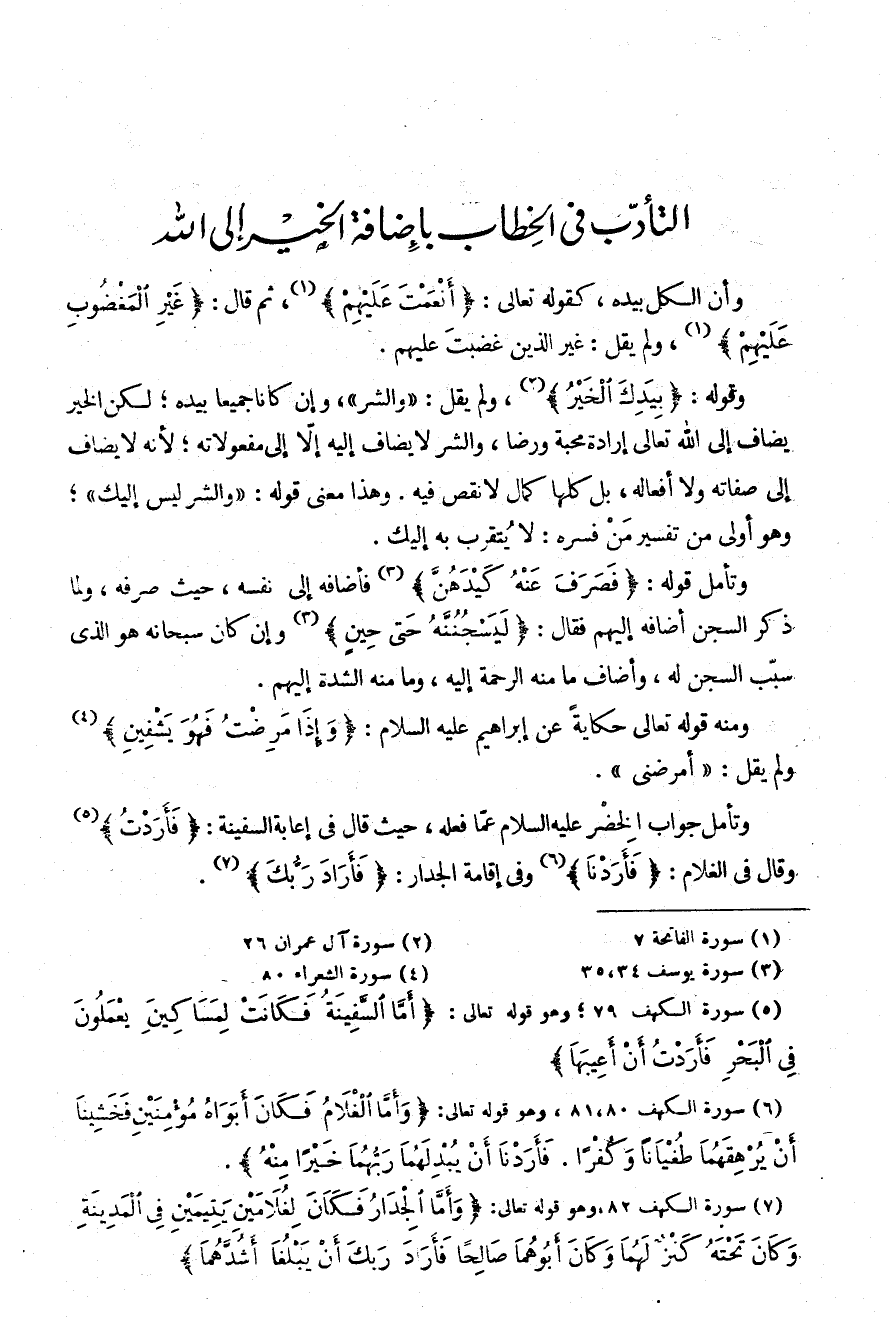 التأدّب فى الخِطاب بإضافة الخيْر إلى الله
وأن الكل بيده ، كقوله تعالى : ﴿ أَنْعَمْتَ عَلَيْهِمْ ﴾ (١)، ثم قال : ﴿ غَيْرِ الْمَغْضُوبِ
عَلَيْهِمْ ﴾ (١) ، ولم يقل : غير الذين غضبتَ عليهم .
وقوله : ﴿ بِيَدِكَ الْخَيْرُ ﴾ (٢) ، ولم يقل : «والشر»، وإن كانا جميعا بيده ؛ لكن الخير
يضاف إلى الله تعالى إرادة محبة ورضا ، والشر لا يضاف إليه إلّا إلى مفعولاته ؛ لأنه لا يضاف
إلى صفاته ولا أفعاله ، بل كلها كمال لا نقص فيه . وهذا معنى قوله : «والشر ليس إليك» ؛
وهو أولى من تفسير مَنْ فسره : لا يُتقرب به إليك .
وتأمل قوله : ﴿ فَصَرَفَ عَنْهُ كَيْدَهُنَّ ﴾ (٣) فأضافه إلى نفسه ، حيث صرفه ، ولما
ذكر السجن أضافه إليهم فقال : ﴿ لَيَسْجُنُنَّهُ حَتَّى حِينٍ ﴾ (٣) وإن كان سبحانه هو الذى
سبّب السجن له ، وأضاف ما منه الرحمة إليه ، وما منه الشدة إليهم .
ومنه قوله تعالى حكايةً عن إبراهيم عليه السلام : ﴿ وَإِذَا مَرِضْتُ فَهُوَ يَشْفِينِ ﴾ (٤)
ولم يقل : « أمرضنى » .
وتأمل جواب الخِضْر عليه السلام عمّا فعله ، حيث قال فى إعابة السفينة : ﴿ فَأَرَدْتُ ﴾ (٥)
وقال فى الغلام : ﴿ فَأَرَدْنَا ﴾ (٦) وفى إقامة الجدار : ﴿ فَأَرَادَ رَبُّكَ ﴾ (٧) .
(١) سورة الفاتحة ٧ (٢) سورة آل عمران ٢٦
(٣) سورة يوسف ٣٥،٣٤ (٤) سورة الشعراء ٨٠
(٥) سورة الكهف ٧٩ ؛ وهو قوله تعالى : ﴿ أَمَّا السَّفِينَةُ فَكَانَتْ لِمَسَاكِينَ يَعْمَلُونَ
فِي الْبَحْرِ فَأَرَدْتُ أَنْ أَعِيبَهَا ﴾
(٦) سورة الكهف ٨١،٨٠ ، وهو قوله تعالى: ﴿ وَأَمَّا الْغُلَامُ فَكَانَ أَبَوَاهُ مُؤْمِنَيْنِ فَخَشِينَا
أَنْ يُرْهِقَهُمَا طُغْيَانًا وَكُفْرًا . فَأَرَدْنَا أَنْ يُبْدِلَهُمَا رَبُّهُمَا خَيْرًا مِنْهُ ﴾ .
(٧) سورة الكهف ٨٢ ،وهو قوله تعالى: ﴿ وَأَمَّا الْجِدَارُ فَكَانَ لِغُلَامَيْنِ يَتِيمَيْنِ فِي الْمَدِينَةِ
وَكَانَ تَحْتَهُ كَنْزٌ لَهُمَا وَكَانَ أَبُوهُمَا صَالِحًا فَأَرَادَ رَبكَ أَنْ يَبْلُغَا أَشُدَّهُمَا ﴾